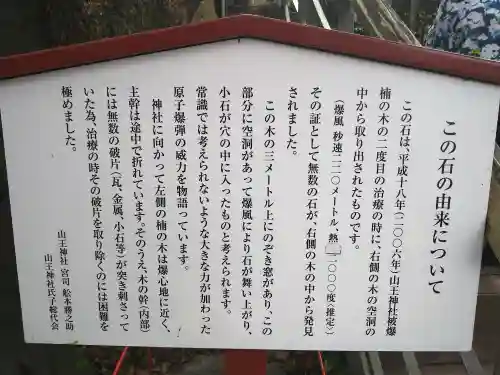 この石の由来について
この石は、平成十八年(二〇〇六年)山王神社被爆
楠の木の二度目の治療の時に、右側の木の空洞の
中から取り出されたものです。
(爆風 秒速二二〇メートル、熱 〇〇〇度(推定))
その証として無数の石が、右側の木の中から発見
されました。
この木の三メートル上にのぞき窓があり、この
部分に空洞があって爆風により石が舞い上がり、
小石が穴の中に入ったものと考えられます。
常識では考えられないような大きな力が加わった
原子爆弾の威力を物語っています。
神社に向かって左側の楠の木は爆心地に近く、
主幹は途中で折れています。そのうえ、木の幹(内部)
には無数の破片(瓦、金属、小石等)が突き刺さって
いた為、治療の時その破片を取り除くのには困難を
極めました。
山王神社 宮司 舩本勝之助
山王神社氏子総代会